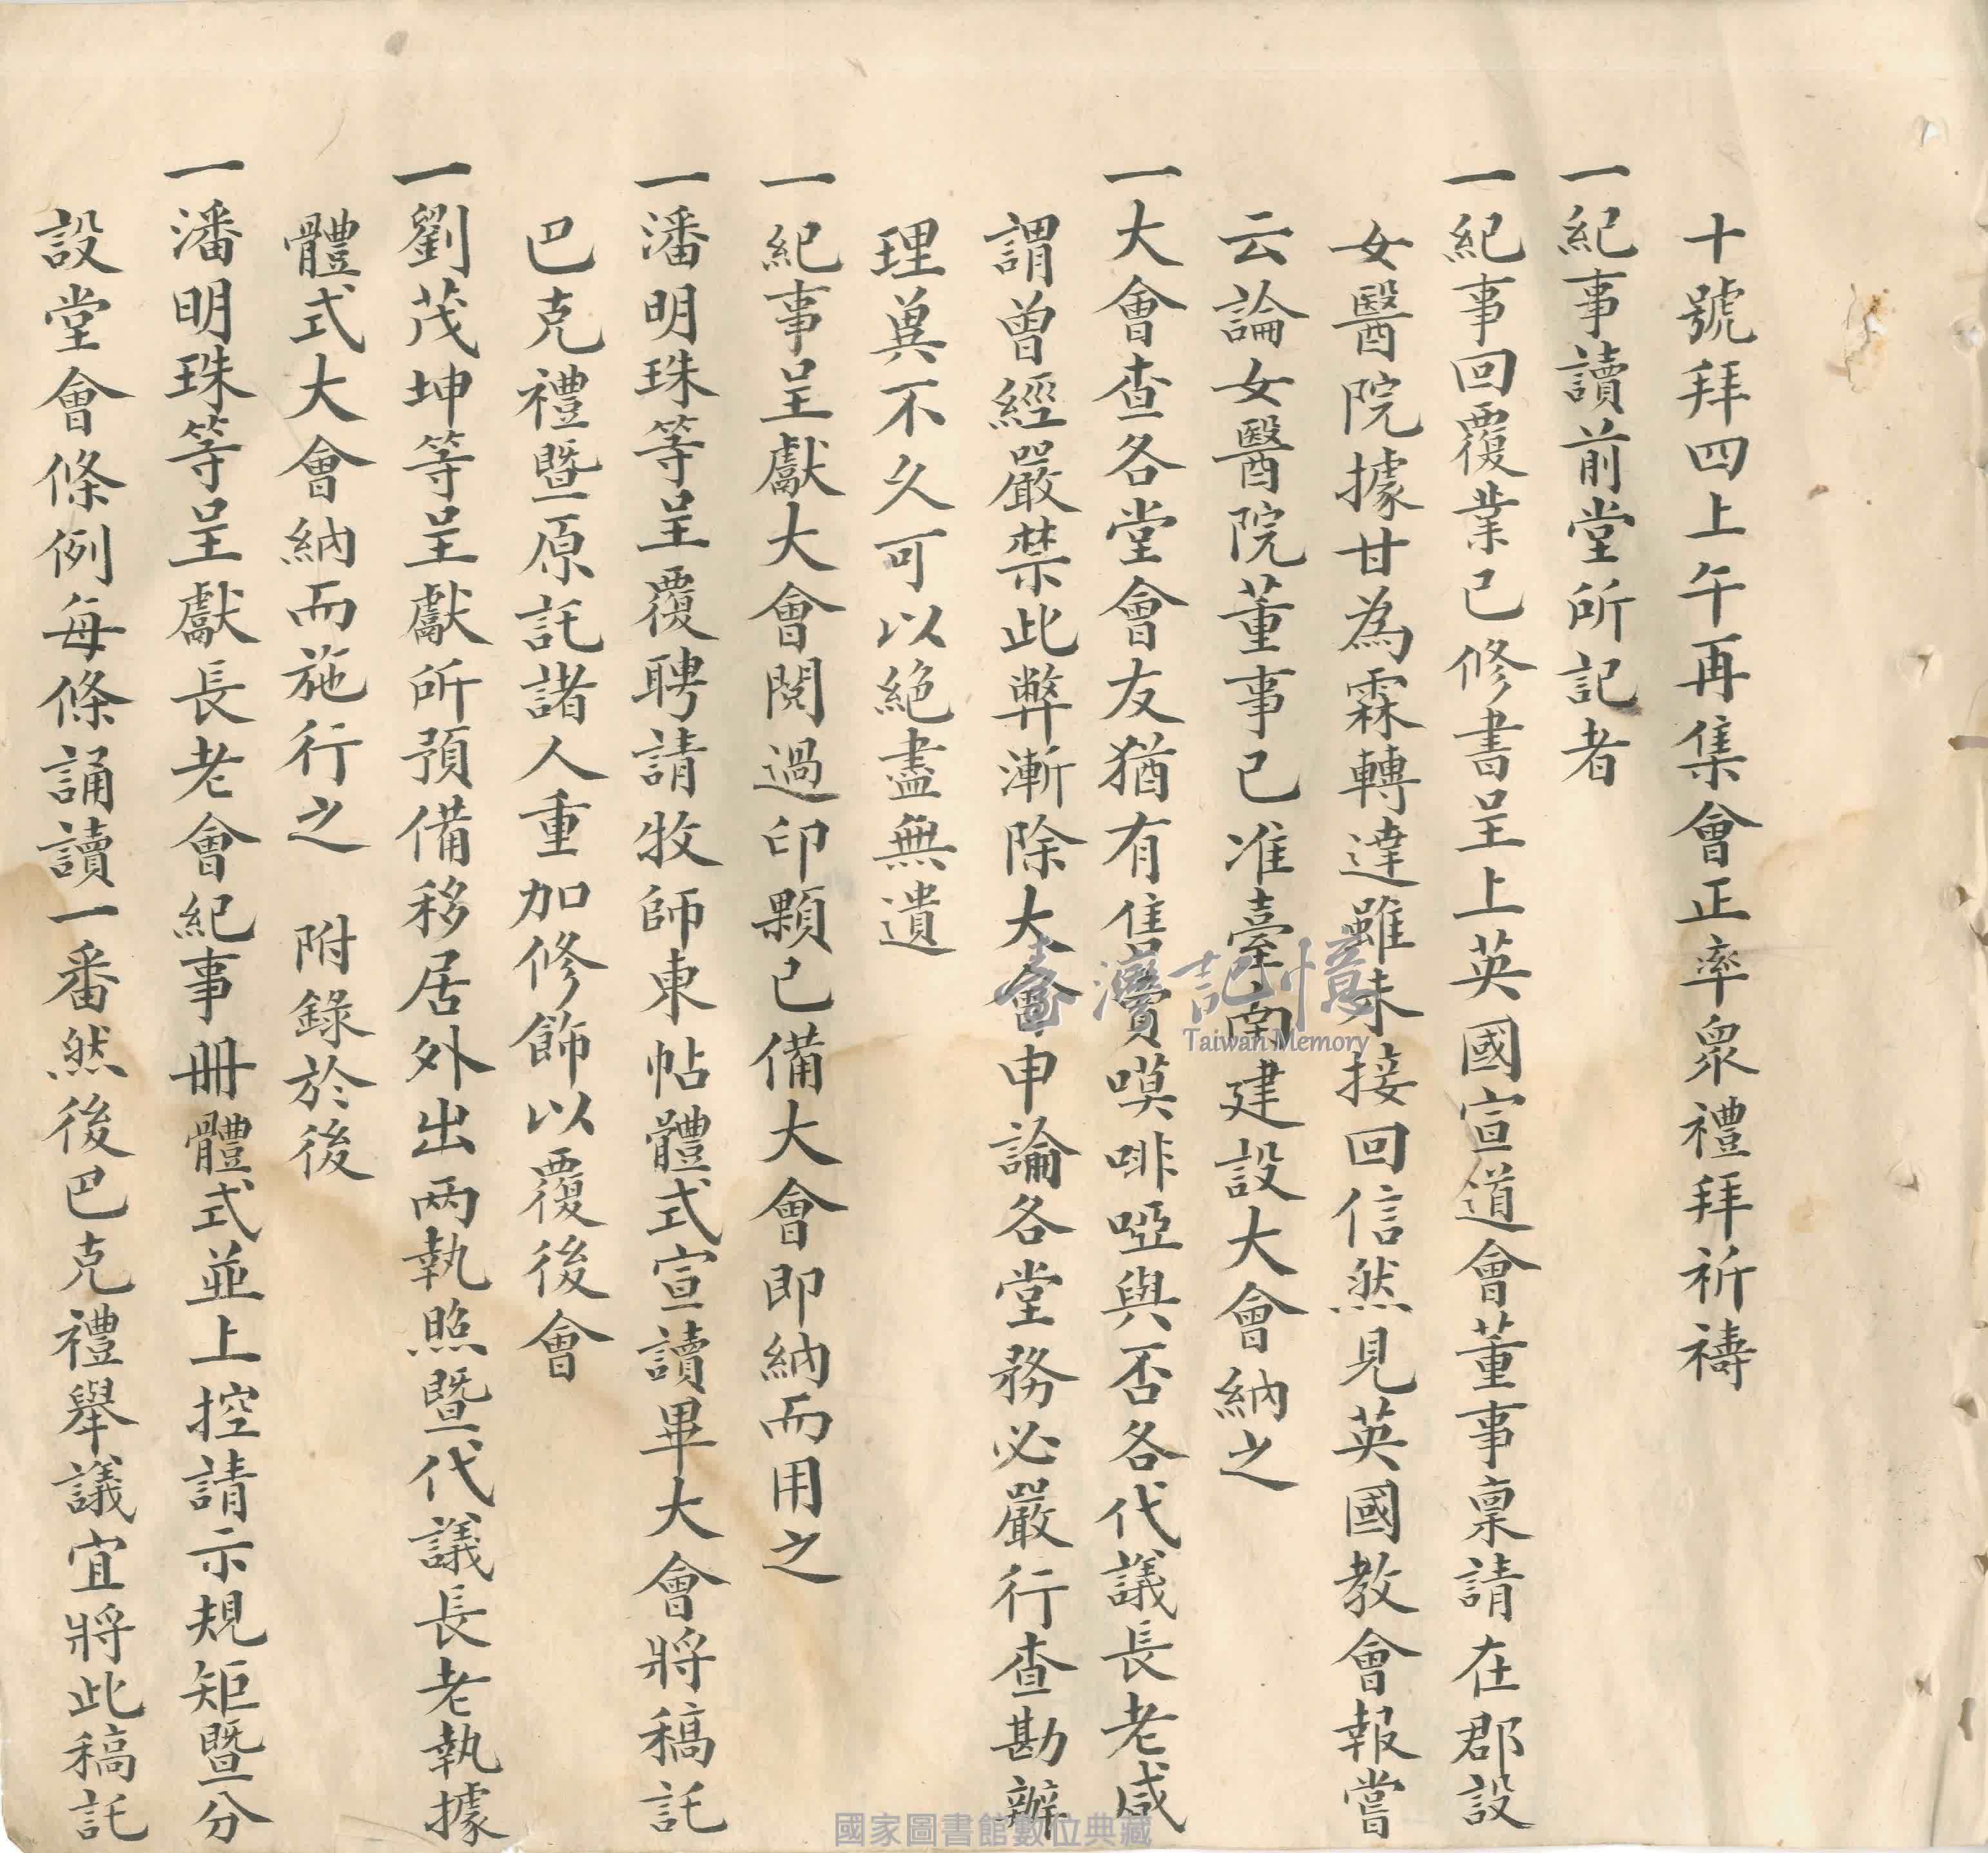 十號拜四上午再集會正率衆禮拜祈禱
一紀事讀前堂所記者
一紀事回覆業已修書呈上英國宣道會董事稟請在郡設
女醫院據甘為霖轉達雖未接回信然見英國教會報嘗
云論女醫院董事已准臺南建設大會納之
一大會查各堂會友猶有售賣嗼啡啞與否各代議長老咸
謂曾經嚴禁此弊漸除大會申論各堂務必嚴行查勘辦
理冀不久可以絕盡無遺
一紀事呈獻大會閱過印顆已備大會即納而用之
一潘明珠等呈覆聘請牧師柬帖體式宣讀畢大會將稿託
巴克禮暨原託諸人重加修飾以覆後會
一劉茂坤等呈獻所預備移居外出两執照暨代議長老執據
體式大會納而施行之 附錄於後
一潘明珠等呈獻長老會紀事冊體式並上控請示規矩暨分
設堂會條例每條誦讀一番然後巴克禮舉議宜將此稿託
臺灣記憶
Taiwan Memory
國家圖書館數位典藏